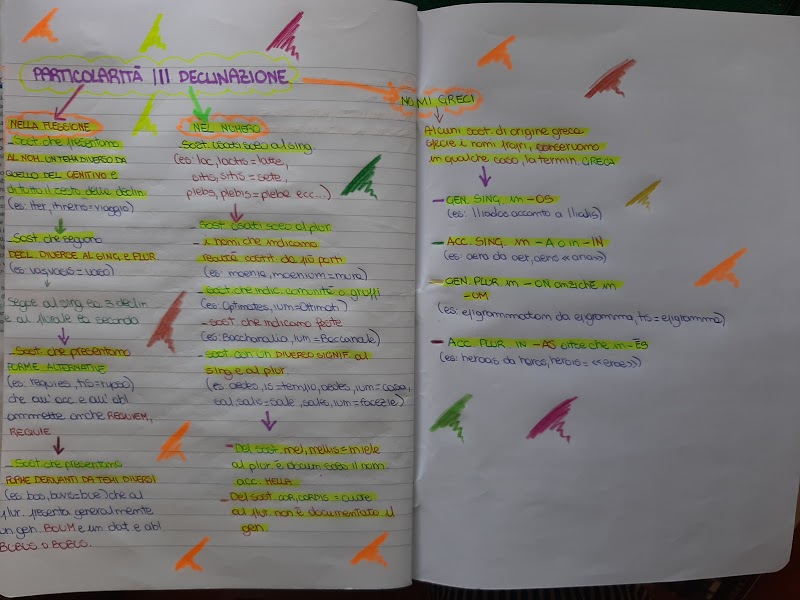 PARTICOLARITÀ III DECLINAZIONE
NELLA FLESSIONE
- Sost. che presentano
AL NOM. UN TEMA DIVERSO DA
QUELLO DEL GENITIVO e
di tutto il resto della declin
(es: iter, itineris = viaggio)
- Sost che seguono
DECL. DIVERSE AL SING. E PLUR
(es: vas, vasis = vaso)
segue al sing la 3 declin
e al plurale la seconda
- Sost che presentano
FORME ALTERNATIVE
(es: requies, tis = riposo)
che all' acc. e all' abl
ammette anche REQUIEM,
REQUIE
- Sost che presentano
FORME DERIVANTI DA TEMI DIVERSI
(es: bos, bovis = bue) che al
plur. presenta generalmente
un gen. BOUM e un dat. e abl.
BOBUS o BUBUS.
NEL NUMERO
Sost. usati solo al sing
(es: lac, lactis = latte,
sitis, sitis = sete,
plebs, plebis = plebe ecc...)
- Sost usati solo al plur.
- i nomi che indicano
realtà costit da più parti
(es: moenia, moenium = mura)
- sost che indic. comunità o gruppi
(es: Optimates, ium = Ottimati)
- sost che indicano feste
(es: Bacchanalia, ium = Baccanale)
- sost con un DIVERSO SIGNIF. al
sing e al plur.
(es: aedes, is = tempio, aedes, ium = casa,
sal, salis = sale, sales, ium = facezie)
- Del sost. mel, mellis = miele
al plur. è docum solo il nom.
acc. MELLA
- Del sost COR, CORDIS = CUORE
al plur. non è documentato il
gen.
NOMI GRECI
Alcuni sost. di origine greca
specie i nomi propri, conservano
in qualche caso, la termin. GRECA
- GEN. SING. in -OS
(es: Iliados accanto a Iliadis)
- ACC. SING. in -A o in -IN
(es: aera da aer, aeris «aria»)
- GEN. PLUR in -ON anziché in
-UM
(es: epigrammaton da epigramma, tis = epigramma)
- ACC. PLUR IN -AS oltre che in -ES
(es: heroas da heros, herois = «eroe»)